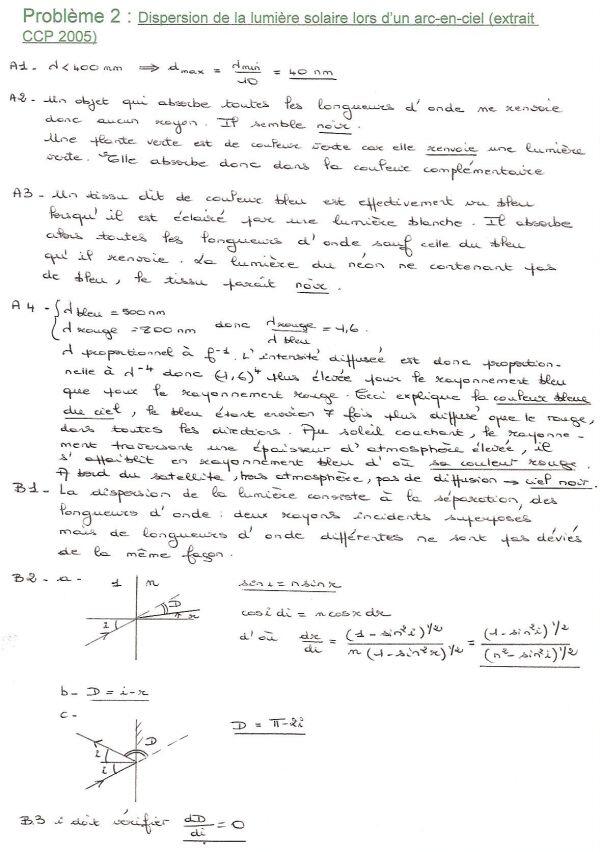 Problème 2 : Dispersion de la lumière solaire lors d'un arc-en-ciel (extrait
CCP 2005)
A1 - d < 400 nm ⟹ d max = d min / 10 = 40 nm
A2 - Un objet qui absorbe toutes les longueurs d'onde ne renvoie
donc aucun rayon. Il semble noir.
Une plante verte est de couleur verte car elle renvoie une lumière
verte. Elle absorbe donc dans la couleur complémentaire
A3 - Un tissu dit de couleur bleu est effectivement vu bleu
lorsqu'il est éclairé par une lumière blanche. Il absorbe
alors toutes les longueurs d'onde sauf celle du bleu
qu'il renvoie. La lumière du néon ne contenant pas
de bleu, le tissu paraît noir.
A4 - { d bleu = 500 nm
{ d rouge = 800 nm donc d rouge / d bleu = 1,6.
d proportionnel à f⁻¹. L'intensité diffusée est donc proportion-
nelle à d⁻⁴ donc (1,6)⁴ plus élevée pour le rayonnement bleu
que pour le rayonnement rouge. Ceci explique la couleur bleue
du ciel, le bleu étant environ 7 fois plus diffusé que le rouge,
dans toutes les directions. Au soleil couchant, le rayonne-
ment traversant une épaisseur d'atmosphère élevée, il
s'affaiblit en rayonnement bleu d'où sa couleur rouge.
A bord du satellite, hors atmosphère, pas de diffusion → ciel noir.
B1 - La dispersion de la lumière consiste à la séparation des
longueurs d'onde : deux rayons incidents superposés
mais de longueurs d'onde différentes ne sont pas déviés
de la même façon.
B2 - a - 1 n sin i = n sin r
i D r cos i di = n cos r dr
d'où dr/di = (1 - sin²i)^1/2 / n (1 - sin²r)^1/2 = (1 - sin²i)^1/2 / (n² - sin²i)^1/2
b - D = i - r
c - i i D D = π - 2i
B.3 i doit vérifier dD/di = 0